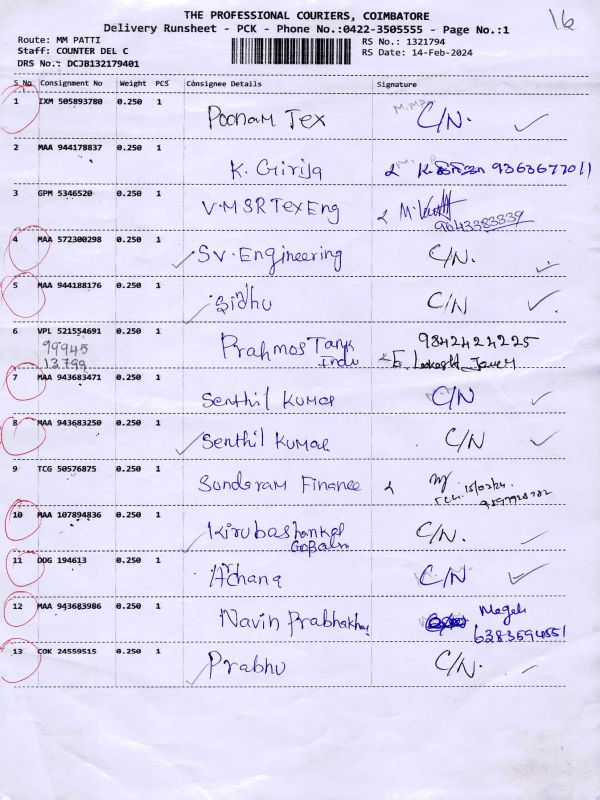 THE PROFESSIONAL COURIERS, COIMBATORE
16
Delivery Runsheet - PCK - Phone No.:0422-3505555 - Page No.:1
Route: MM PATTI
RS No.: 1321794
Staff: COUNTER DEL C
RS Date: 14-Feb-2024
DRS No.: DCJB132179401
S No. Consignment No Weight PCS Consignee Details Signature
1 IXM 505893780 0.250 1 Poonam Tex C/N.
2 MAA 944178837 0.250 1 K. Girija 9363677011
3 GPM 5346520 0.250 1 V.M S R Tex Eng
9043383339
4 MAA 572300298 0.250 1 SV. Engineering C/N.
5 MAA 944188176 0.250 1 Sidhu C/N.
6 VPL 521554691 0.250 1 Prahmos Tank 9842424225
99945 Indu
13799
7 MAA 943683471 0.250 1 Senthil Kumar C/N
8 MAA 943683250 0.250 1 Senthil Kumar C/N
9 TCG 50576875 0.250 1 Sundaram Finance
15/02/24
10 MAA 107894836 0.250 1 Kirubashankar C/N.
Gopalan
11 DDG 194613 0.250 1 Archana C/N
12 MAA 943683986 0.250 1 Navin Prabhakar
13 COK 24559515 0.250 1 Prabhu C/N.